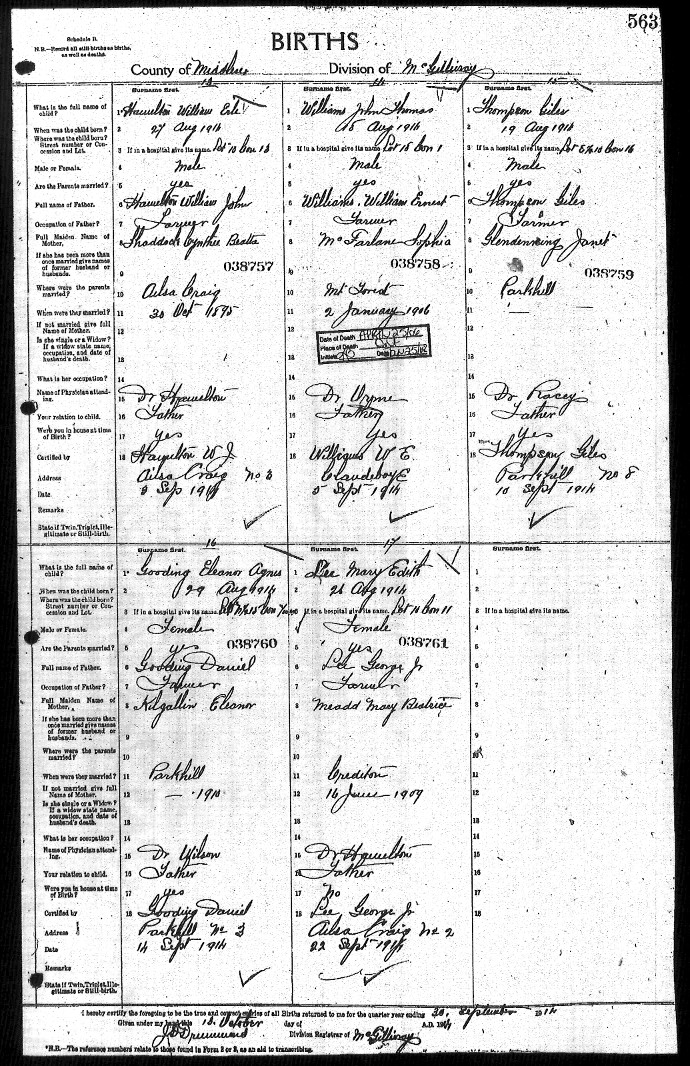 563
Schedule B.
N.B.—Record all still births as births,
as well as deaths.
BIRTHS
County of Middlesex Division of McGillivray
13 14 15
Surname first. Surname first.
What is the full name of child? 1 Hamilton William Earl Williams John Thomas Thompson Giles
When was the child born? 2 27 Aug 1914 15 Aug 1914 19 Aug 1914
Where was the child born? Street number or Concession and Lot. 3 If in a hospital give its name. Lot 10 Con 13 If in a hospital give its name. Lot 15 Con 1 If in a hospital give its name. Lot 5 & 10 Con 16
Male or Female. 4 Male Male Male
Are the Parents married? 5 yes yes yes
Full name of Father. 6 Hamilton William John Williams William Ernest Thompson Giles
Occupation of Father? 7 Farmer Farmer Farmer
Full Maiden Name of Mother. 8 Shaddock Cynthia Beatta McFarlane Sophia Glendenning Janet
If she has been more than once married give names of former husband or husbands. 9
038757 038758 038759
Where were the parents married? 10 Ailsa Craig Mt Forest Parkhill
When were they married? 11 30 Oct 1895 2 January 1906 — —
If not married give full Name of Mother. 12
Date of Death
Place of Death Ont
Initials Date
Is she single or a Widow? If a widow state name, occupation, and date of husband's death. 13
What is her occupation? 14
Name of Physician attending. 15 Dr Hamilton Dr Orme Dr Racey
Your relation to child. 16 Father Father Father
Were you in house at time of Birth? 17 Yes Yes Yes
Certified by 18 Hamilton W J Williams W E. Thompson Giles
Address Ailsa Craig No 3 Clandeboye Parkhill No 8
Date 5 Sep 1914 5 Sept 1914 10 Sept 1914
Remarks
State if Twin, Triplet, Illegitimate or Still-birth.
16 17
Surname first. Surname first. Surname first.
What is the full name of child? 1 Gooding Eleanor Agnes Lee Mary Edith
When was the child born? 2 29 Aug 1914 26 Aug 1914
Where was the child born? Street number or Concession and Lot. 3 If in a hospital give its name. If in a hospital give its name. Lot 10 Con 11 If in a hospital give its name.
Male or Female. 4 Female Female
Are the Parents married? 5 yes yes
038760 038761
Full name of Father. 6 Gooding Daniel Lee George Jr
Occupation of Father? 7 Farmer Farmer
Full Maiden Name of Mother. 8 Kilgallin Eleanor Meadd Mary Beatrice
If she has been more than once married give names of former husband or husbands. 9
Where were the parents married? 10
When were they married? 11 Parkhill Crediton
If not married give full Name of Mother. 12 — 1910 16 June 1909
Is she single or a Widow? If a widow state name, occupation, and date of husband's death. 13
What is her occupation? 14
Name of Physician attending. 15 Dr Wilson Dr Hamilton
Your relation to child. 16 Father Father
Were you in house at time of Birth? 17 yes no
Certified by 18 Gooding Daniel Lee George Jr
Address Parkhill No 3 Ailsa Craig No 2
Date 14 Sept 1914 22 Sept 1914
Remarks
State if Twin, Triplet, Illegitimate or Still-birth.
I hereby certify the foregoing to be the true and correct entries of all Births returned to me for the quarter year ending 30, September 1914
Given under my hand this 12. October day of A.D. 1914
Drummond Division Registrar of McGillivray
*N.B.—The reference numbers relate to those found in Form 2 or B, as an aid to transcribing.